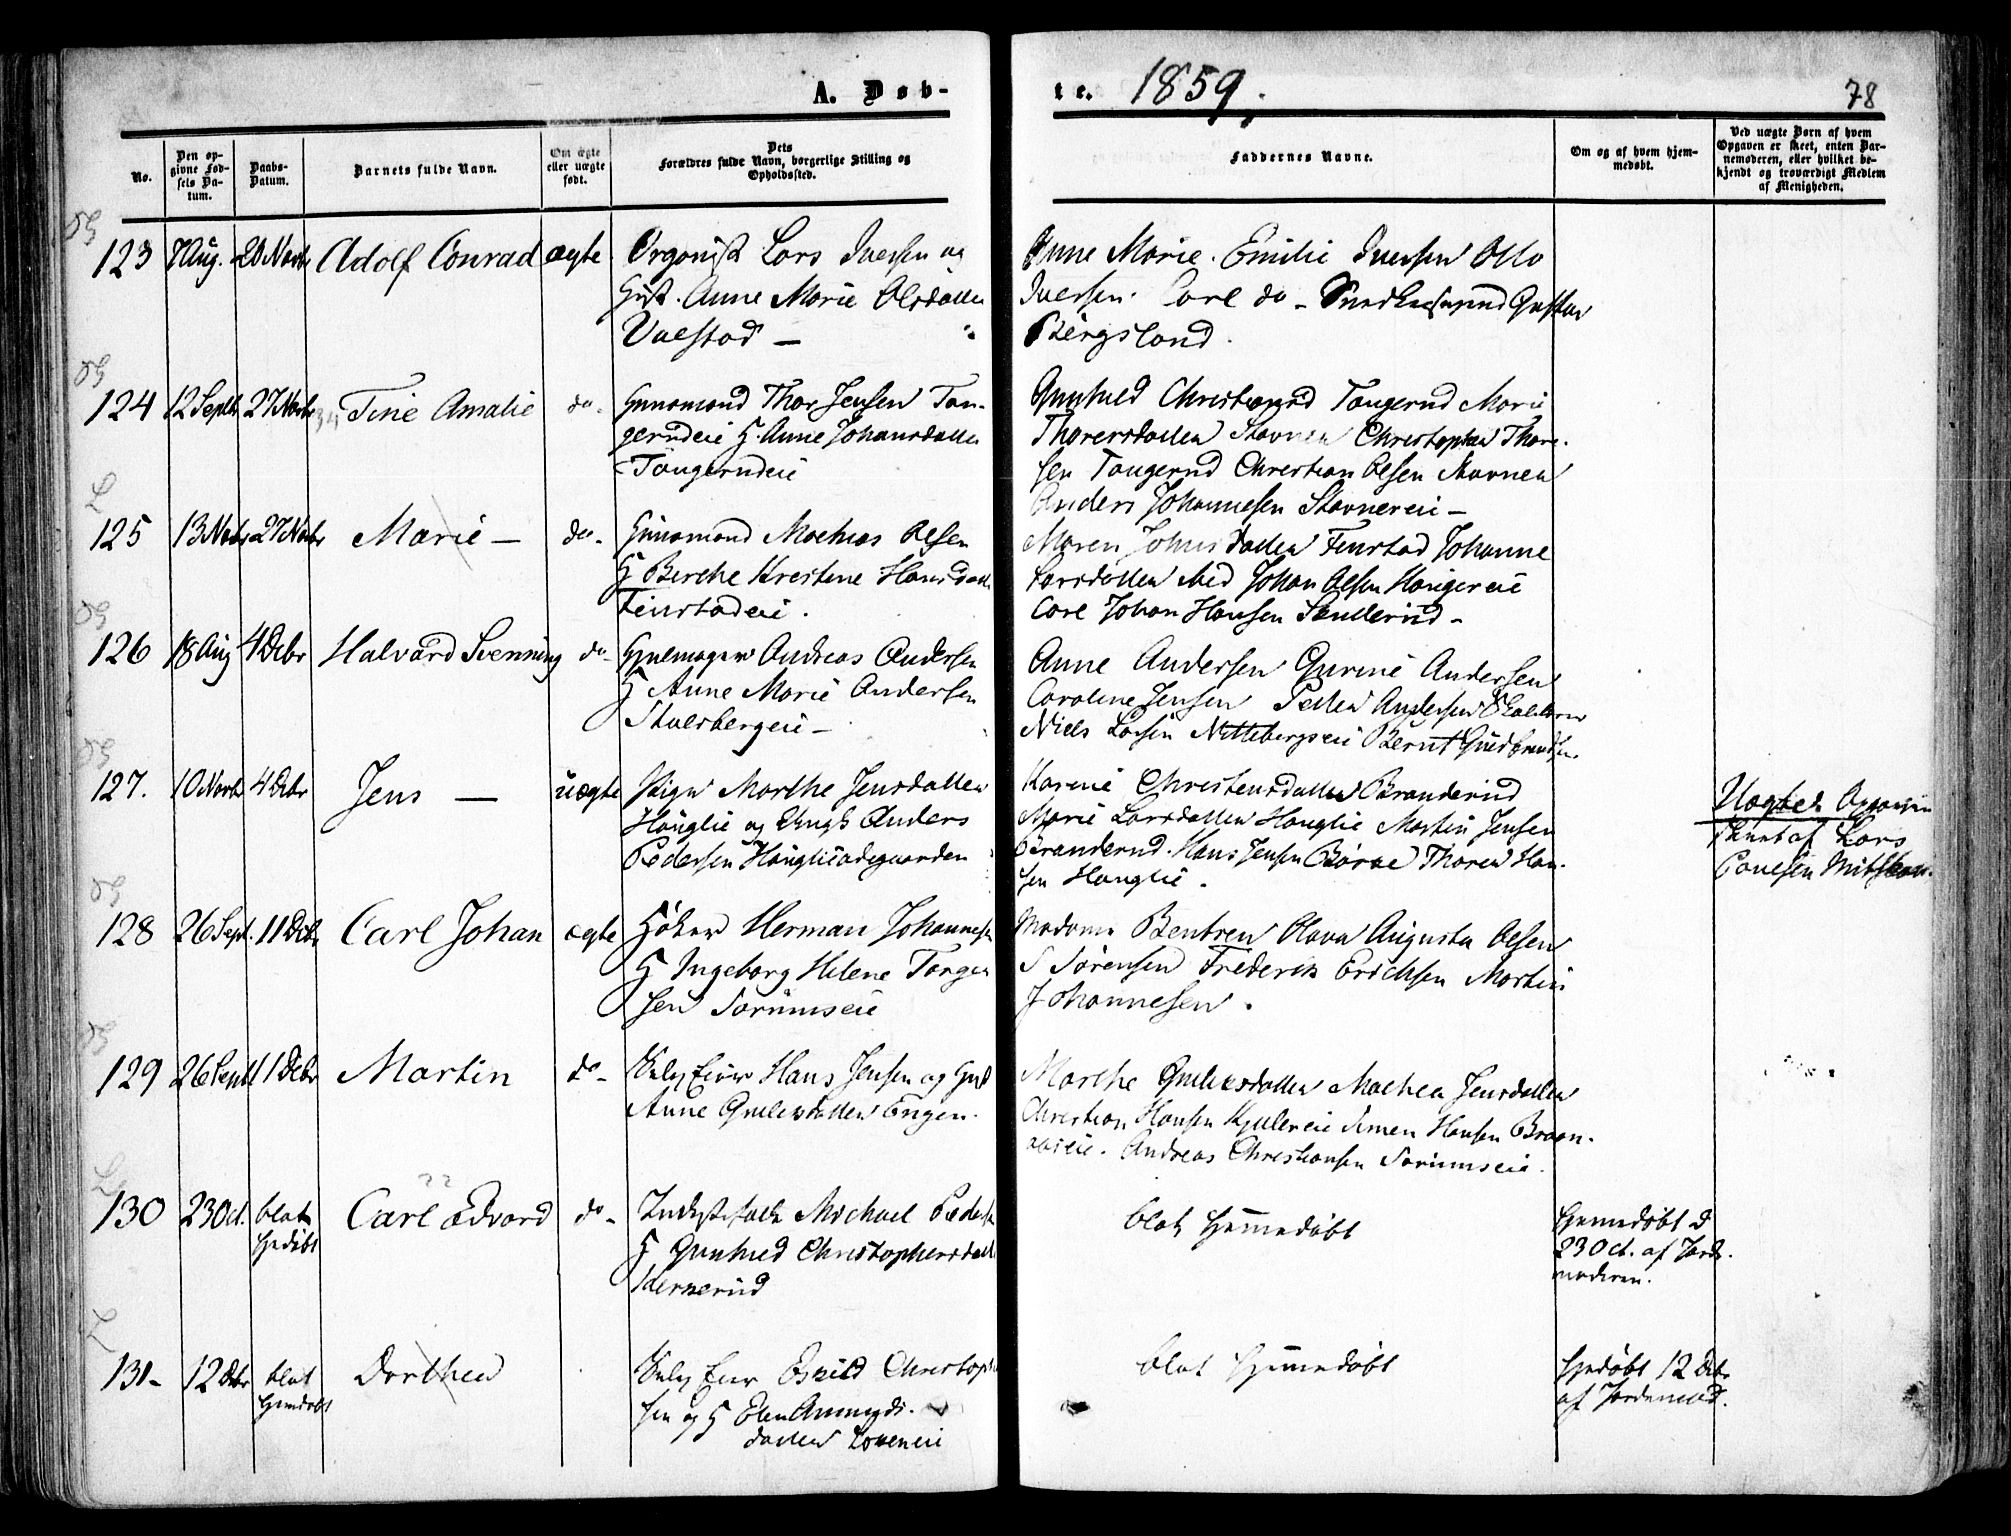 A. Døb-
te. 1859.
78
No.
Den op-
givne Fød-
sels Da-
tum.
Daabs-
Datum.
Barnets fulde Navn.
Om ægte
eller uægte
født.
Dets
Forældres fulde Navn, borgerlige Stilling og
Opholdssted.
Faddernes Navne.
Om og af hvem hjem-
medøbt.
Ved uægte Børn af hvem
Opgaven er skeet, enten Bar-
nemoderen, eller hvilket be-
kjendt og troværdigt Medlem
af Menigheden.
123 7 Aug. 20 Novbr Adolf Conrad ægte Organist Lars Iversen og
Hust. Anne Marie Olsdatter
Valstad —
Anne Marie. Emilie Iversen Otto
Iversen. Carl do - Gustav
Bergsland.
124 12 Septbr 27 Novbr Tine Amalie do- Huusmand Thor Jensen Tan-
gerudeie H. Anne Johansdatter
Tangerudeie
Gunhild Tangerud Marie
Thorersdatter Stovner Christopher Thore-
sen Tangerud Christian Olsen Stovner
Anders Johannesen Stovnereie —
125 13 Novbr 27 Novbr Marie — do- Huusmand Mathias Olsen
H Berthe Kristine Hansdatt
Finstadeie.
Maren Johnsdatter Finstad Johanne
Larsdatter Johan Olsen Haugereie
Carl Johan Hansen Sanderud -
126 18 Aug 4 Debr Halvard Svenning do- Hjulmager Andreas Andersen
H Anne Marie Andersen
Stalsbergeie —
Anne Andersen Gurine Andersen
Caroline Jensen Petter Andersen
Niels Larsen Nittebergseie Bernt Gudbrandsen
127. 10 Novbr 4 Debr Jens — uægte Pigen Marthe Jensdatter
Hauglie og Ungk Anders
Pedersen Hauglieødegaarden
Karine Christensdatter Branderud
Marie Larsdatter Hauglie Martin Jensen
Branderud. Hans Jensen Børke Thoren Han-
sen Hauglie.
Uægted. Opgaven
skeet af Lars
Paulsen
128 26 Sept. 11 Debr Carl Johan ægte Høker Herman Johannesen
H Ingeborg Helene Torger
sen Sørumseie
Madame Bentzen Olava Augusta Olsen
S Sørensen Frederik Erichsen Martin
Johannesen.
129 26 Septbr 11 Debr Martin do- Hans Jensen og Hust
Anne Gulliksdatter Engen.
Marthe Gulliksdatter Mathea Jensdatter
Christian Hansen Kjullereie Simen Hansen Braan-
aaseie. Andreas Christiansen Sørumseie.
130 23 Oct. blot
Hjdøbt
Carl Edvard do- Inderst Michael Peders
H Gunhild Christophersdatt
blot Hjemmedøbt
Hjemmedøbt d
23 Oct. af Jorde-
moderen.
131- 12 Dbr blot
Hjemdøbt
Dorthea Christoph
sen og H
datter
blot Hjemmedøbt
Hjdøbt 12 Debr
af Jordemod.